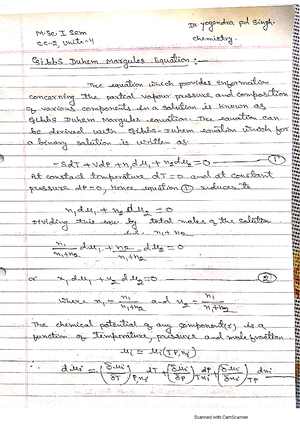 M.Sc. I Sem
CC-2, Unit-4
Dr. Yogendra pd Singh.
Chemistry.
Gibbs Duhem Margules Equation :-
The equation which provides information
concerning the partial vapour pressure and composition
of various components in a solution is known as
Gibbs Duhem Margules equation. The equation can
be derived with Gibbs-Duhem equation which for
a binary solution is written as
-SdT + VdP + n₁dμ₁ + n₂dμ₂ = 0 — ①
At constant temperature dT=0 and at constant
pressure dP=0, hence equation ① reduces to
n₁dμ₁ + n₂dμ₂ = 0
Dividing this equ by total moles of the solution
i.e. n₁+n₂
n₁/n₁+n₂ dμ₁ + n₂/n₁+n₂ dμ₂ = 0
or x₁dμ₁ + x₂dμ₂ = 0 — ②
where x₁ = n₁/n₁+n₂ and x₂ = n₁/n₁+n₂
The chemical potential of any component(i) is a
function of temperature, pressure and mole fraction
μi = μi(T,P,ni)
∴ dμi = (δμi/δT)P,ni dT + (δμi/δP)T,ni dP + (δμi/δni)TP dni
Scanned with CamScanner